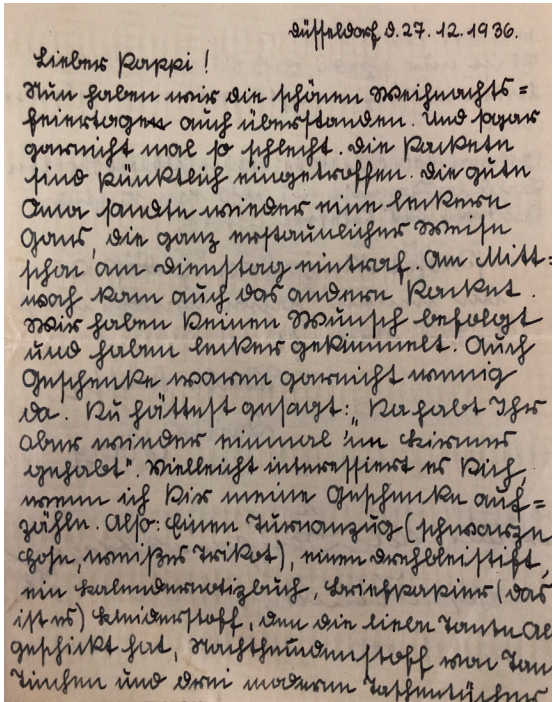 Düsseldorf d. 27. 12. 1936.
Lieber Pappi!
Nun haben wir die schönen Weihnachts=
feiertage auch überstanden. Und sogar
garnicht mal so schlecht. Die Packete
sind pünktlich eingetroffen. Die gute
Oma sandte wieder eine leckere
Gans, die ganz erstaunlicher Weise
schon am Dienstag eintraf. Am Mitt=
woch kam auch das andere Packet.
Wir haben Deinen Wunsch befolgt
und haben lecker gekimmelt. Auch
Geschenke waren garnicht wenig
da. Du hättest gesagt: „Da habt Ihr
aber wieder einmal 'ne Kirmes
gehabt". Vielleicht interessiert es Dich,
wenn ich Dir meine Geschenke auf=
zähle. Also: Einen Turnanzug (schwarze
Hose, weißes Trikot), einen Drehbleistift,
ein Kalendernotizbuch, Briefpapier (das
ist es) Kleiderstoff, den die liebe Tante
geschickt hat, Nachthemdenstoff von
Tinchen und drei moderne Taschentücher